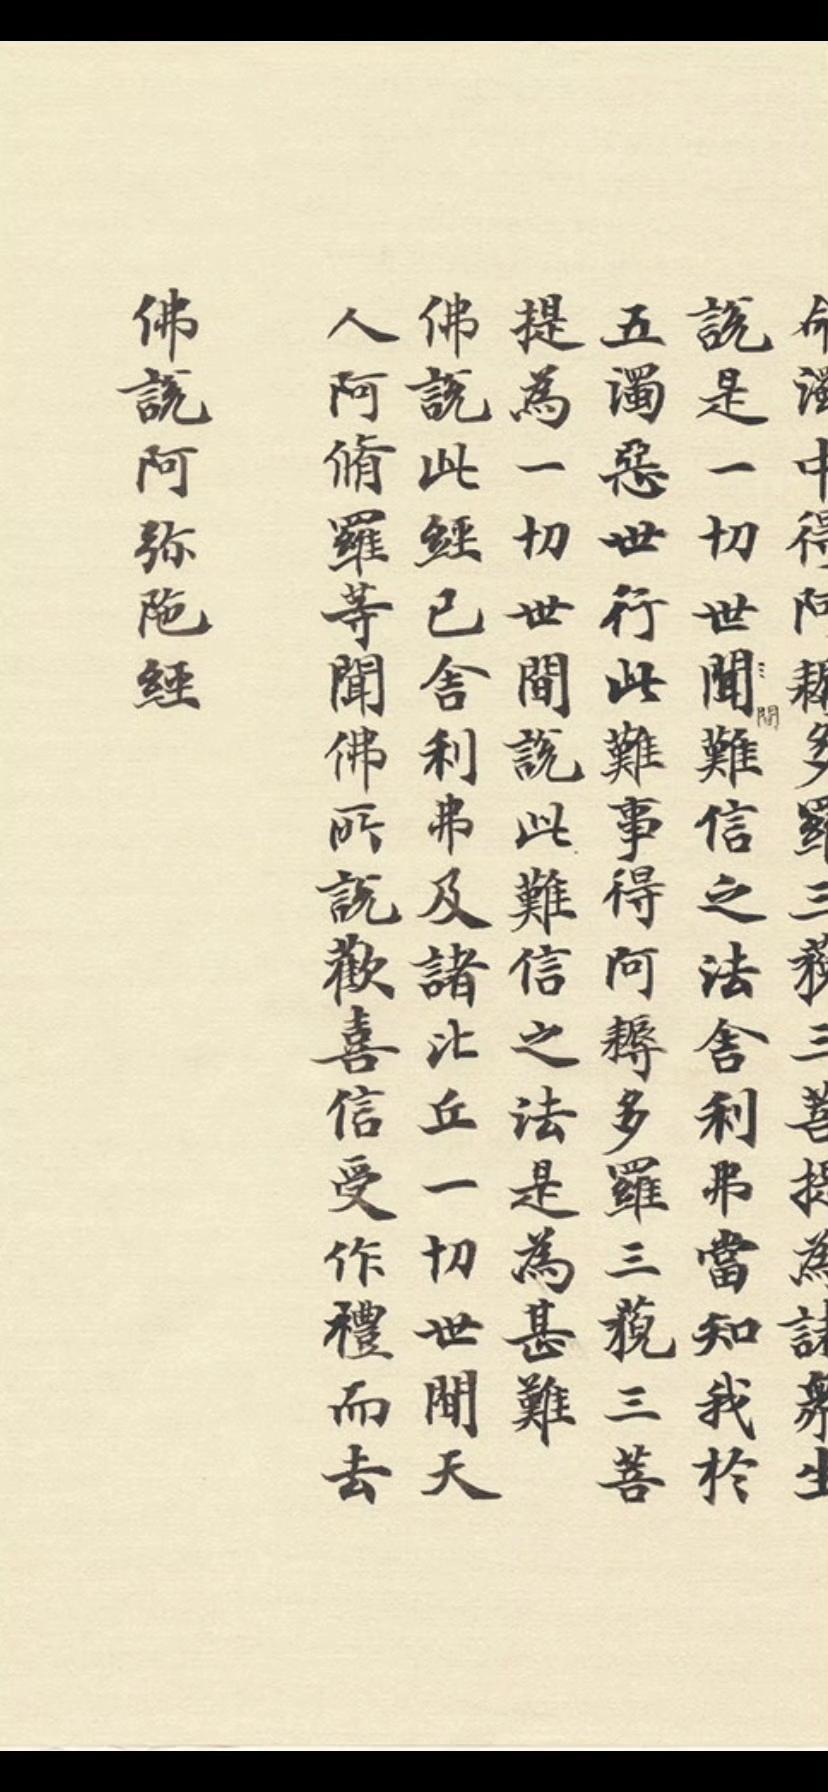 命濁中得阿耨多羅三藐三菩提為諸衆生
說是一切世聞難信之法舍利弗當知我於
間
五濁惡世行此難事得阿耨多羅三藐三菩
提為一切世間說此難信之法是為甚難
佛說此經已舍利弗及諸比丘一切世間天
人阿脩羅等聞佛所說歡喜信受作禮而去
佛說阿弥陁經